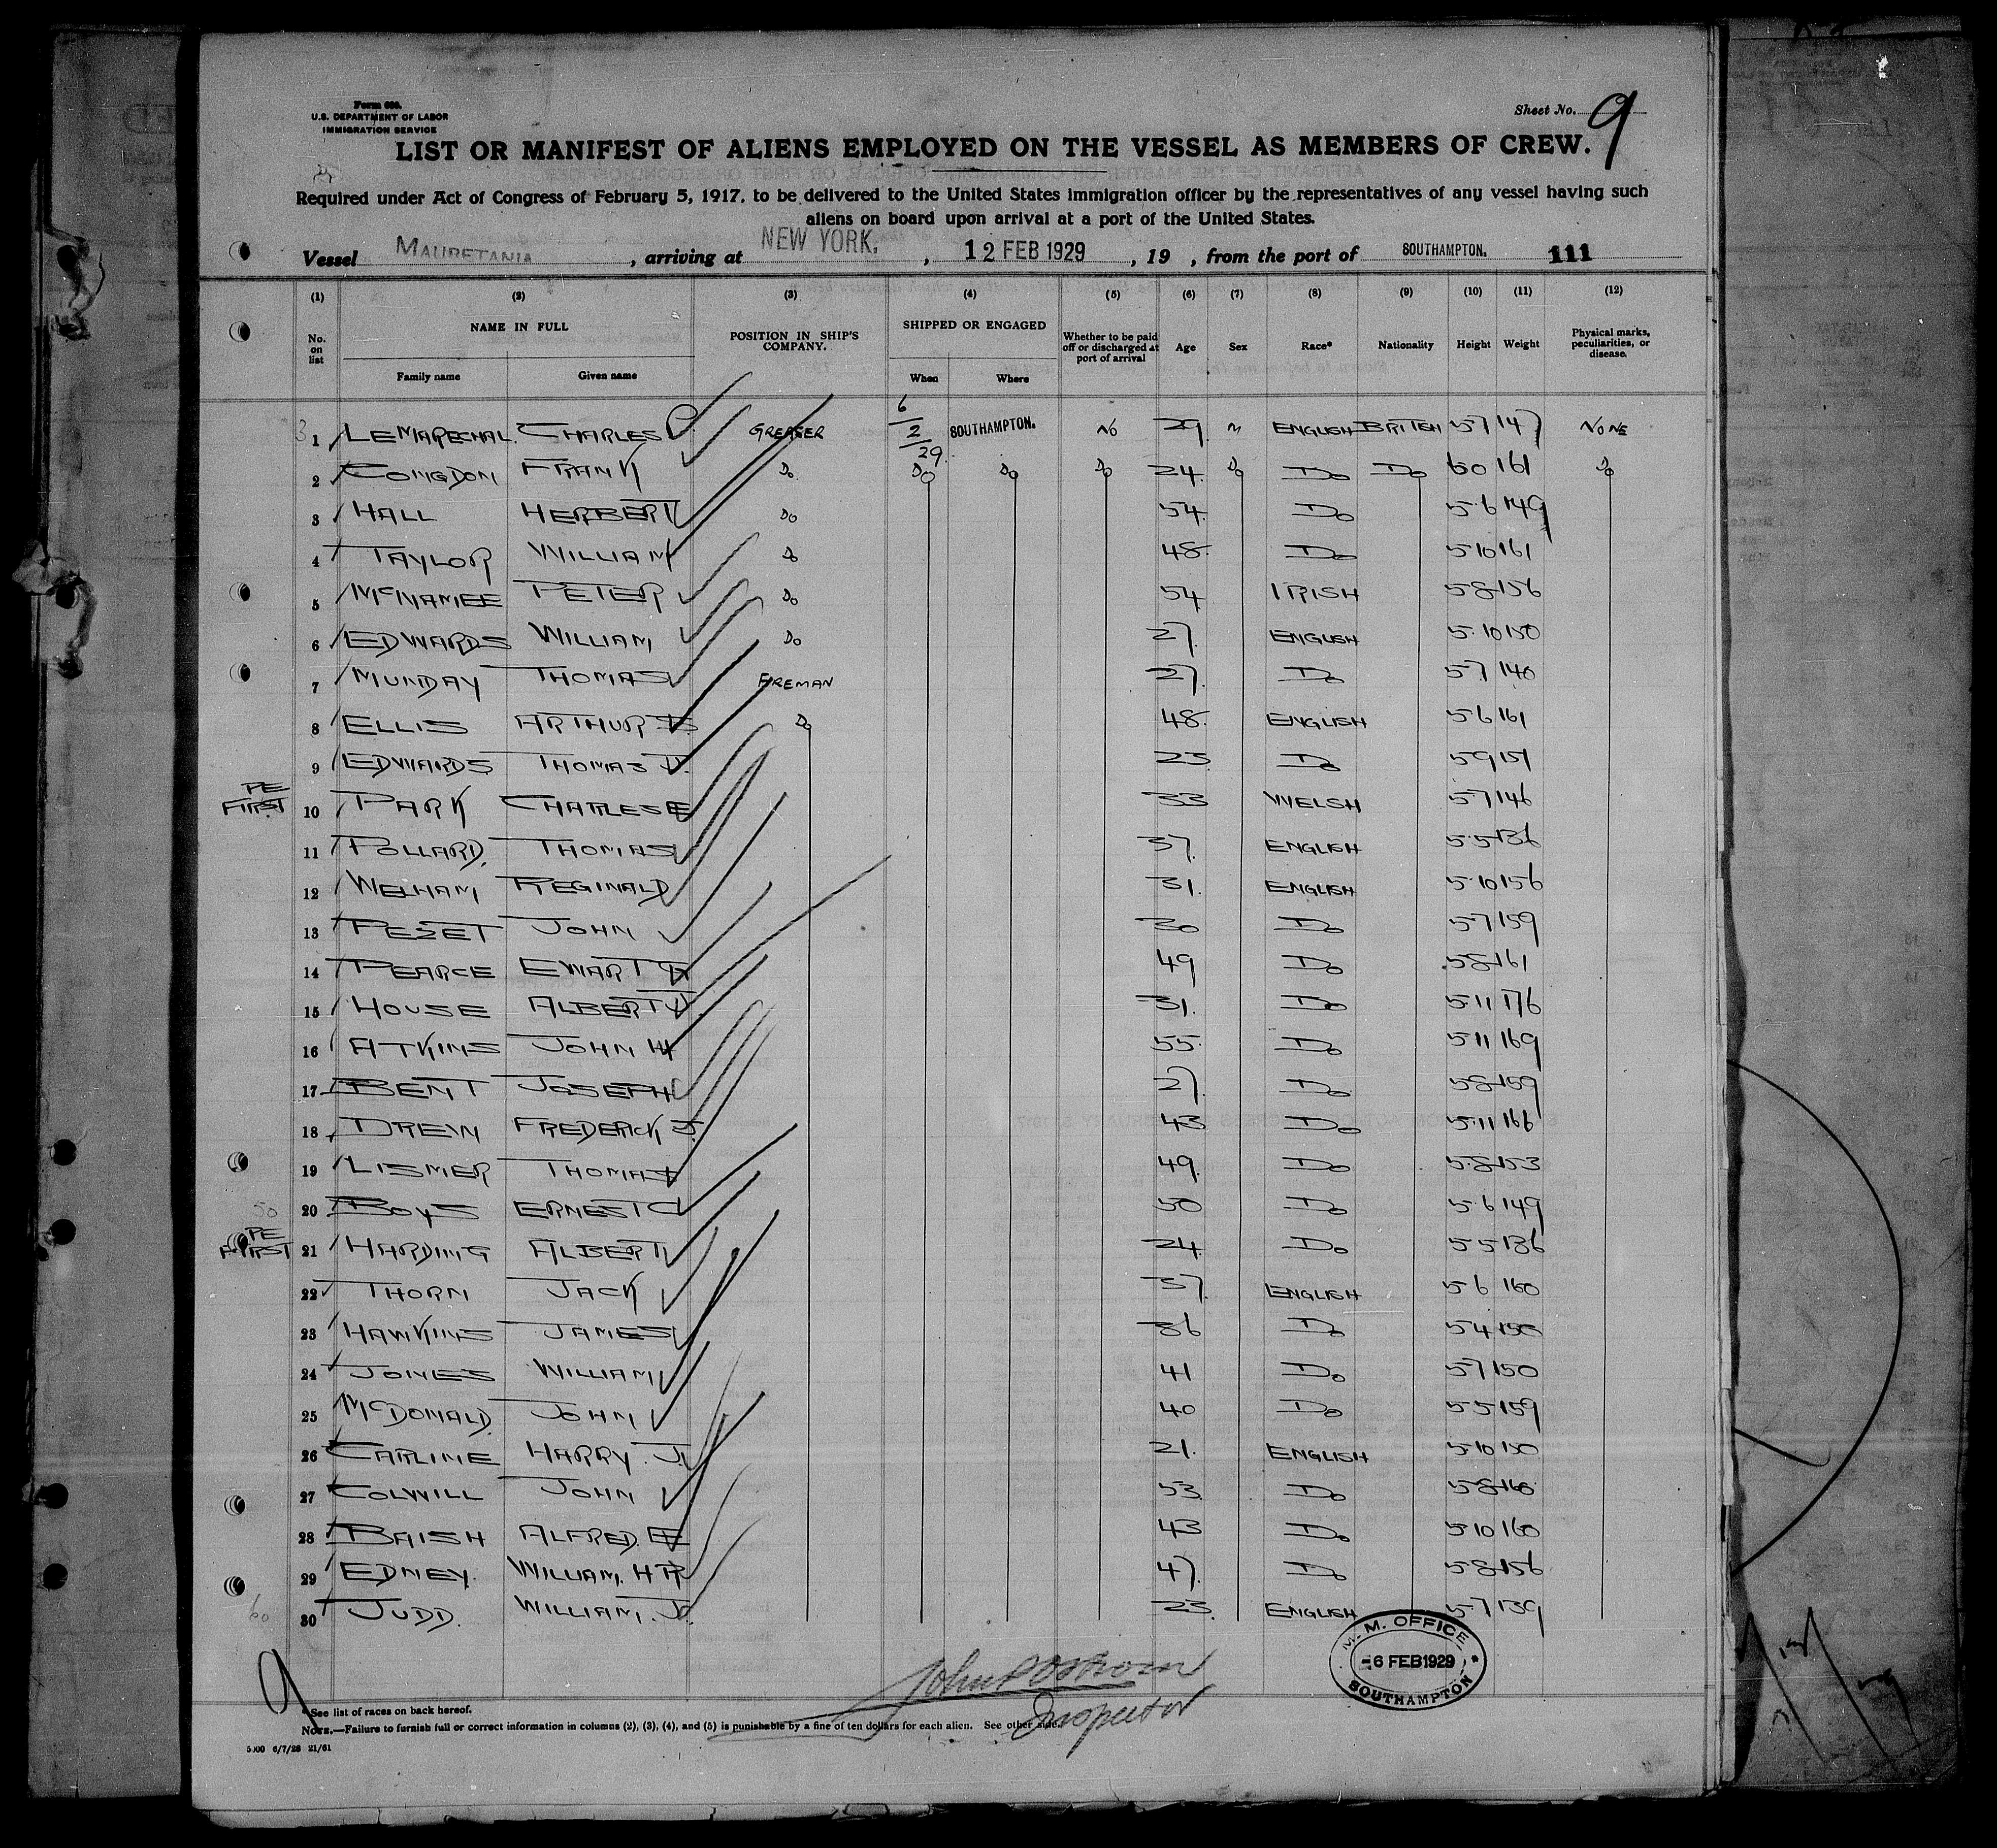 Form 680.
U.S. DEPARTMENT OF LABOR
IMMIGRATION SERVICE
Sheet No. 9
LIST OR MANIFEST OF ALIENS EMPLOYED ON THE VESSEL AS MEMBERS OF CREW.
Required under Act of Congress of February 5, 1917, to be delivered to the United States immigration officer by the representatives of any vessel having such
aliens on board upon arrival at a port of the United States.
Vessel MAURETANIA, arriving at NEW YORK., 12 FEB 1929, 19 , from the port of SOUTHAMPTON. 111
(1) (2) (3) (4) (5) (6) (7) (8) (9) (10) (11) (12)
No. on list NAME IN FULL Family name Given name POSITION IN SHIP'S COMPANY. SHIPPED OR ENGAGED When Where Whether to be paid off or discharged at port of arrival Age Sex Race* Nationality Height Weight Physical marks, peculiarities, or disease.
1 LEMARECHAL. CHARLES P. GREASER 6/2/29. SOUTHAMPTON. NO 29. M ENGLISH BRITISH 5-7 147 NONE
2 CONGDON FRANK Do Do Do Do 24. Do Do Do 60 161 Do
3 HALL HERBERT Do 54. Do 5-6 149
4 TAYLOR WILLIAM Do 48. Do 5-10 161
5 McNAMEE PETER Do 54 IRISH 5-8 156
6 EDWARDS WILLIAM Do 27. ENGLISH 5-10 150
7 MUNDAY THOMAS FIREMAN 27. Do 5-7 140
8 ELLIS ARTHUR Do 48. ENGLISH 5-6 161
9 EDWARDS THOMAS J. 23 Do 5-9 151
PE
FIRST 10 PARK CHARLES E 33 WELSH 5-7 146
11 POLLARD. THOMAS 37. ENGLISH 5-5 136
12 WELHAM REGINALD 31. ENGLISH 5-10 156
13 PEZET JOHN 30 Do 5-7 159
14 PEARCE EWART G 49 Do 5-8 161
15 HOUSE ALBERT J. 31. Do 5-11 176
16 ATKINS JOHN H 55. Do 5-11 169
17 BENT JOSEPH 27. Do 5-8 159
18 DREW FREDERICK J. 43 Do 5-11 166
19 LISMER THOMAS 49. Do 5-8 153
50 20 BOYS ERNEST C 50 Do 5-6 149
PE
FIRST 21 HARDING ALBERT 24 Do 5-5 136
22 THORN JACK 37. ENGLISH 5-6 160
23 HAWKINS JAMES 36 Do 5-4 150
24 JONES WILLIAM 41 Do 5-7 150
25 McDONALD. JOHN 40 Do 5-5 159
26 CARLINE HARRY. J. 21. ENGLISH 5-10 150
27 COLWILL JOHN 53. Do 5-8 160
28 BAISH ALFRED. E 43 Do 5-10 160
29 EDNEY. WILLIAM. H R 47. Do 5-8 156
60 30 JUDD. WILLIAM. J. 23. ENGLISH 5-7 139
M. M. OFFICE
-6 FEB 1929
SOUTHAMPTON
9
Inspector
* See list of races on back hereof.
NOTE.—Failure to furnish full or correct information in columns (2), (3), (4), and (5) is punishable by a fine of ten dollars for each alien. See other side.
5000 6/7/28 21/61